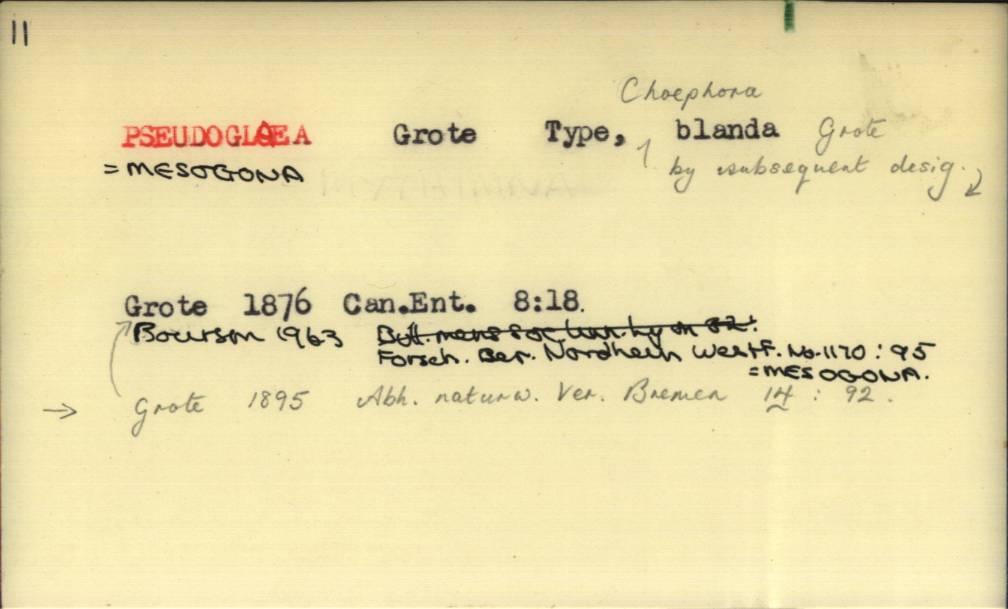 11
Choephora
PSEUDOGLAEA Grote Type, blanda Grote
= MESOGONA by subsequent desig.
Grote 1876 Can.Ent. 8:18.
Boursin 1963 Bull. mens Soc. linn. Lyon 32:
Forsch. Ber. Nordrhein Westf. No. 1170 : 95
= MESOGONA.
→ Grote 1895 Abh. naturw. Ver. Bremen 14 : 92.